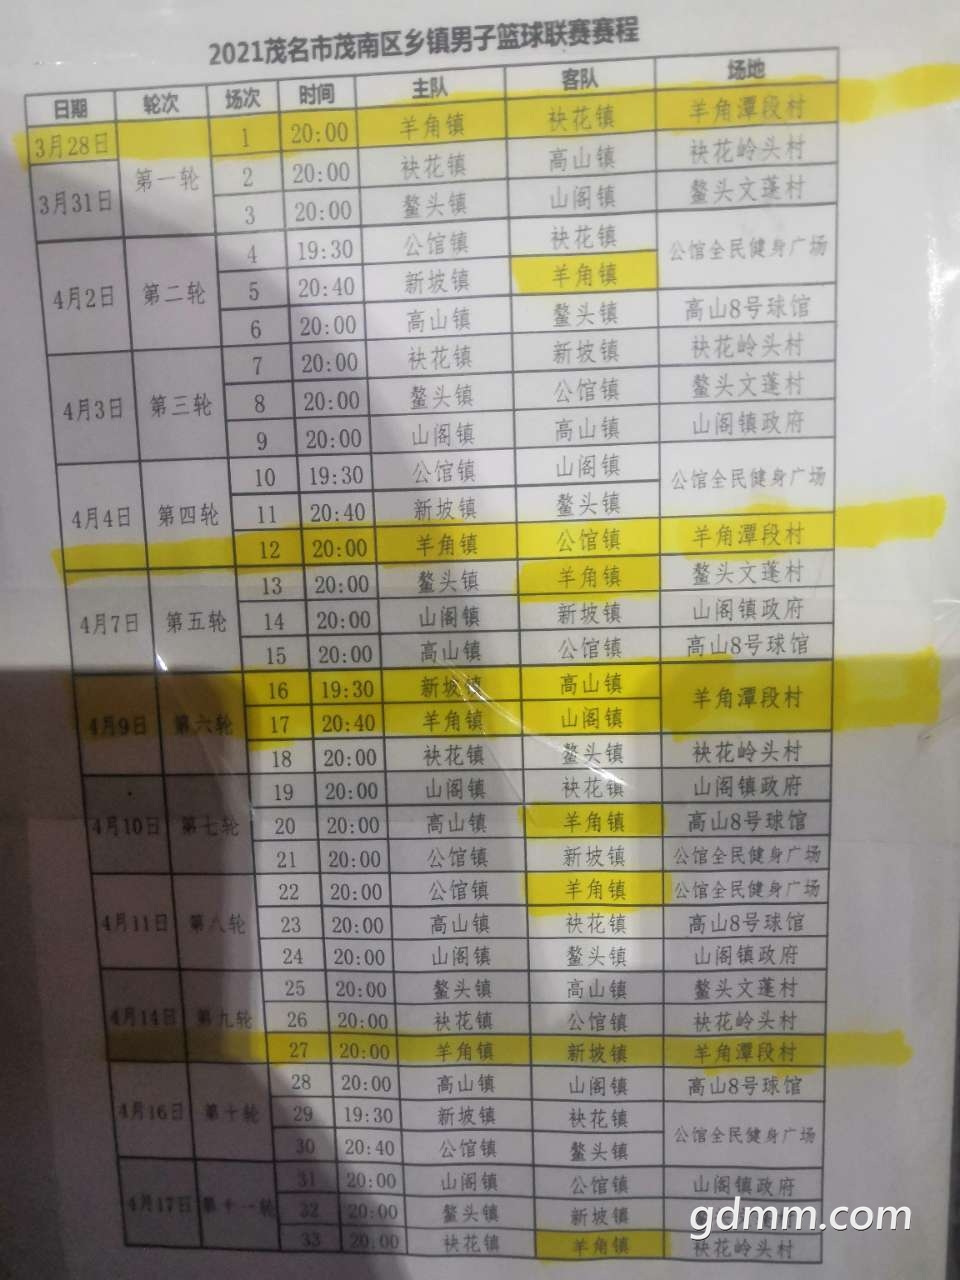 2021茂名市茂南区乡镇男子篮球联赛赛程
日期 轮次 场次 时间 主队 客队 场地
3月28日 1 20:00 羊角镇 袂花镇 羊角潭段村
3月31日 第一轮 2 20:00 袂花镇 高山镇 袂花岭头村
3 20:00 鳌头镇 山阁镇 鳌头文蓬村
4月2日 第二轮 4 19:30 公馆镇 袂花镇 公馆全民健身广场
5 20:40 新坡镇 羊角镇
6 20:00 高山镇 鳌头镇 高山8号球馆
4月3日 第三轮 7 20:00 袂花镇 新坡镇 袂花岭头村
8 20:00 鳌头镇 公馆镇 鳌头文蓬村
9 20:00 山阁镇 高山镇 山阁镇政府
4月4日 第四轮 10 19:30 公馆镇 山阁镇 公馆全民健身广场
11 20:40 新坡镇 鳌头镇
12 20:00 羊角镇 公馆镇 羊角潭段村
4月7日 第五轮 13 20:00 鳌头镇 羊角镇 鳌头文蓬村
14 20:00 山阁镇 新坡镇 山阁镇政府
15 20:00 高山镇 公馆镇 高山8号球馆
4月9日 第六轮 16 19:30 新坡镇 高山镇 羊角潭段村
17 20:40 羊角镇 山阁镇
18 20:00 袂花镇 鳌头镇 袂花岭头村
4月10日 第七轮 19 20:00 山阁镇 袂花镇 山阁镇政府
20 20:00 高山镇 羊角镇 高山8号球馆
21 20:00 公馆镇 新坡镇 公馆全民健身广场
4月11日 第八轮 22 20:00 公馆镇 羊角镇 公馆全民健身广场
23 20:00 高山镇 袂花镇 高山8号球馆
24 20:00 山阁镇 鳌头镇 山阁镇政府
4月14日 第九轮 25 20:00 鳌头镇 高山镇 鳌头文蓬村
26 20:00 袂花镇 公馆镇 袂花岭头村
27 20:00 羊角镇 新坡镇 羊角潭段村
4月16日 第十轮 28 20:00 高山镇 山阁镇 高山8号球馆
29 19:30 新坡镇 袂花镇 公馆全民健身广场
30 20:40 公馆镇 鳌头镇
4月17日 第十一轮 31 20:00 山阁镇 公馆镇 山阁镇政府
32 20:00 鳌头镇 新坡镇
33 20:00 袂花镇 羊角镇 袂花岭头村
gdmm.com